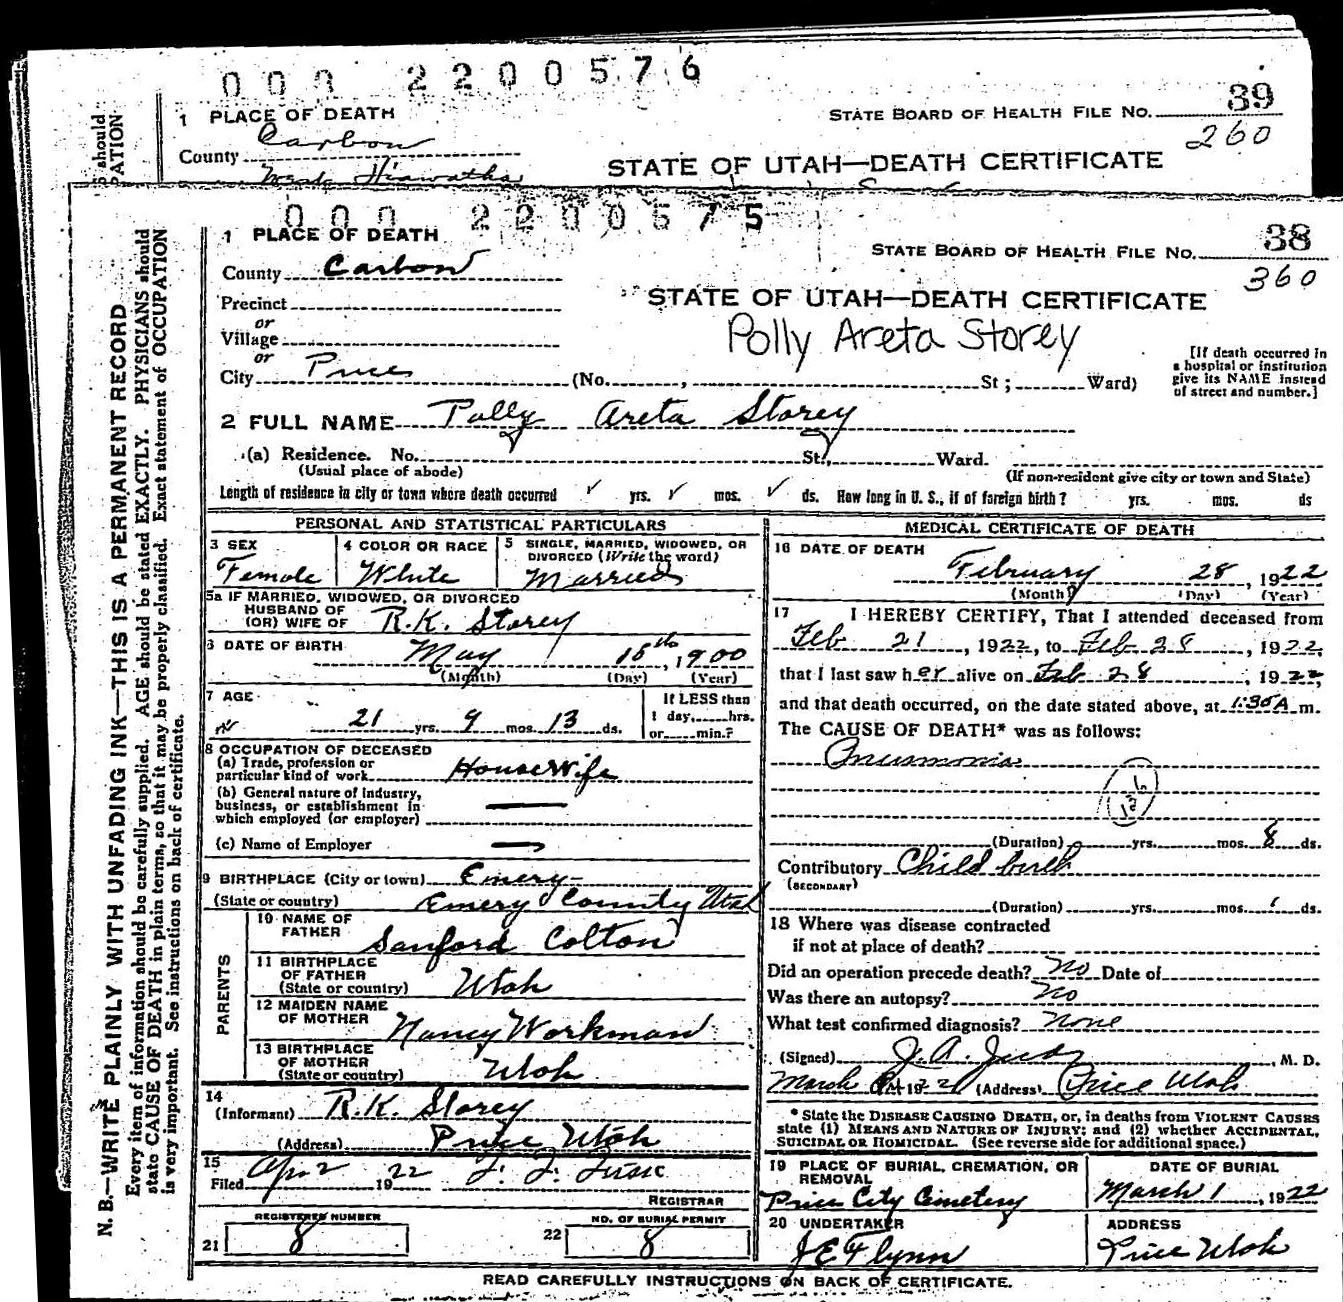 000 2200576
1 PLACE OF DEATH
STATE BOARD OF HEALTH FILE NO. 39
260
County Carbon
STATE OF UTAH—DEATH CERTIFICATE
Hiawatha
should
PATION
000 2200575
1 PLACE OF DEATH
STATE BOARD OF HEALTH FILE NO. 38
360
County Carbon
Precinct
STATE OF UTAH—DEATH CERTIFICATE
or
Village
Polly Areta Storey
or
City Price (No. , St ; Ward)
[If death occurred in
a hospital or institution
give its NAME instead
of street and number.]
2 FULL NAME Polly Areta Storey
(a) Residence. No. St., Ward.
(Usual place of abode) (If non-resident give city or town and State)
Length of residence in city or town where death occurred ✓ yrs. ✓ mos. ✓ ds. How long in U. S., if of foreign birth? yrs. mos. ds
PERSONAL AND STATISTICAL PARTICULARS
3 SEX
Female
4 COLOR OR RACE
White
5 SINGLE, MARRIED, WIDOWED, OR
DIVORCED (Write the word)
Married
5a IF MARRIED, WIDOWED, OR DIVORCED
HUSBAND OF
(OR) WIFE OF R.K. Storey
6 DATE OF BIRTH May 15th, 1900
(Month) (Day) (Year)
7 AGE
21 yrs. 9 mos. 13 ds.
If LESS than
1 day, hrs.
or min.?
8 OCCUPATION OF DECEASED
(a) Trade, profession or
particular kind of work HouseWife
(b) General nature of industry,
business, or establishment in
which employed (or employer)
(c) Name of Employer
9 BIRTHPLACE (City or town) Emery
(State or country) Emery County Utah
PARENTS
10 NAME OF
FATHER Sanford Colton
11 BIRTHPLACE
OF FATHER
(State or country) Utah
12 MAIDEN NAME
OF MOTHER Nancy Workman
13 BIRTHPLACE
OF MOTHER
(State or country) Utah
14
(Informant) R.K. Storey
(Address) Price Utah
15
Filed Apr 2 1922
REGISTRAR
REGISTERED NUMBER
21 8
NO. OF BURIAL PERMIT
22 8
MEDICAL CERTIFICATE OF DEATH
16 DATE OF DEATH
February 28, 1922
(Month) (Day) (Year)
17 I HEREBY CERTIFY, That I attended deceased from
Feb 21, 1922, to Feb 28, 1922,
that I last saw her alive on Feb 28, 1922,
and that death occurred, on the date stated above, at 1:35 A m.
The CAUSE OF DEATH* was as follows:
Pneumonia
(Duration) yrs. mos. 8 ds.
Contributory Child birth
(SECONDARY)
(Duration) yrs. mos. ds.
18 Where was disease contracted
if not at place of death?
Did an operation precede death? No Date of
Was there an autopsy? No
What test confirmed diagnosis? None
(Signed) , M. D.
March 1922 (Address) Price Utah
* State the DISEASE CAUSING DEATH, or, in deaths from VIOLENT CAUSES
state (1) MEANS AND NATURE OF INJURY; and (2) whether ACCIDENTAL,
SUICIDAL OR HOMICIDAL. (See reverse side for additional space.)
19 PLACE OF BURIAL, CREMATION, OR
REMOVAL
Price City Cemetery
DATE OF BURIAL
March 1, 1922
20 UNDERTAKER
J E Flynn
ADDRESS
Price Utah
READ CAREFULLY INSTRUCTIONS ON BACK OF CERTIFICATE.
N. B.—WRITE PLAINLY WITH UNFADING INK—THIS IS A PERMANENT RECORD
Every item of information should be carefully supplied. AGE should be stated EXACTLY. PHYSICIANS should
state CAUSE OF DEATH in plain terms, so that it may be properly classified. Exact statement of OCCUPATION
is very important. See instructions on back of certificate.